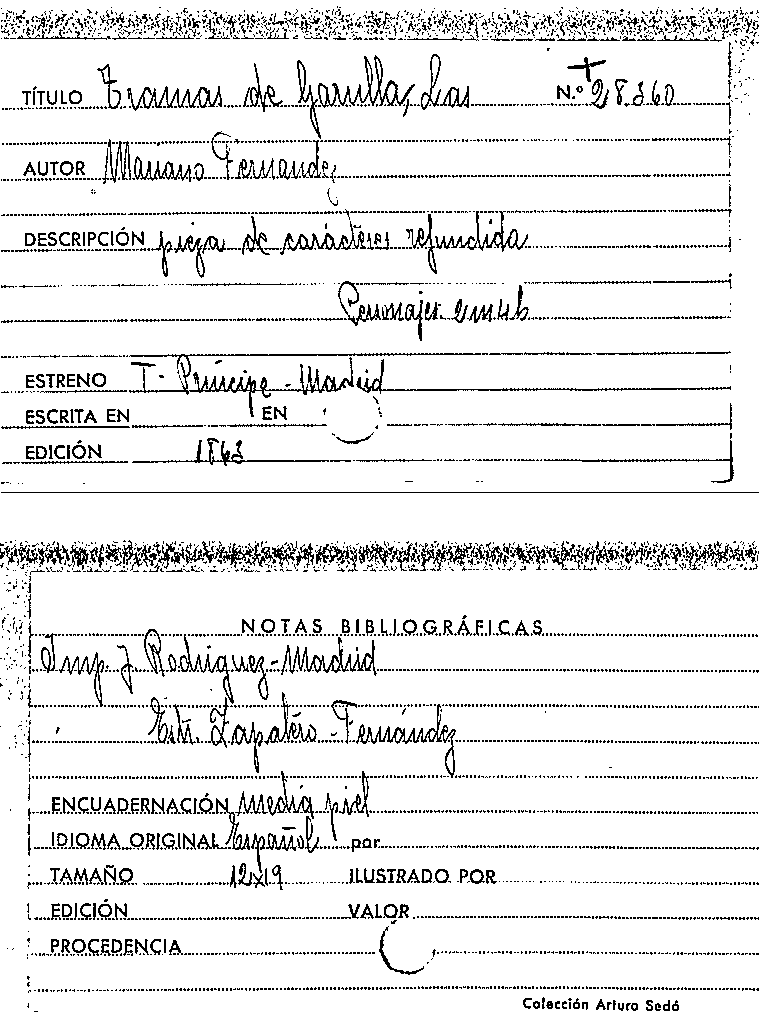 TÍTULO Tramas de Garulla, Las N.º 28.360
AUTOR Mariano Fernandez
DESCRIPCIÓN pieza de carácteres refundida
Personajes 2m4h
ESTRENO T. Príncipe - Madrid
ESCRITA EN EN
EDICIÓN 1863
NOTAS BIBLIOGRÁFICAS
Imp. J. Rodriguez - Madrid
Estr. Zapatero - Fernández
ENCUADERNACIÓN media piel
IDIOMA ORIGINAL Español por
TAMAÑO 12x19 ILUSTRADO POR
EDICIÓN VALOR
PROCEDENCIA
Colección Arturo Sedó